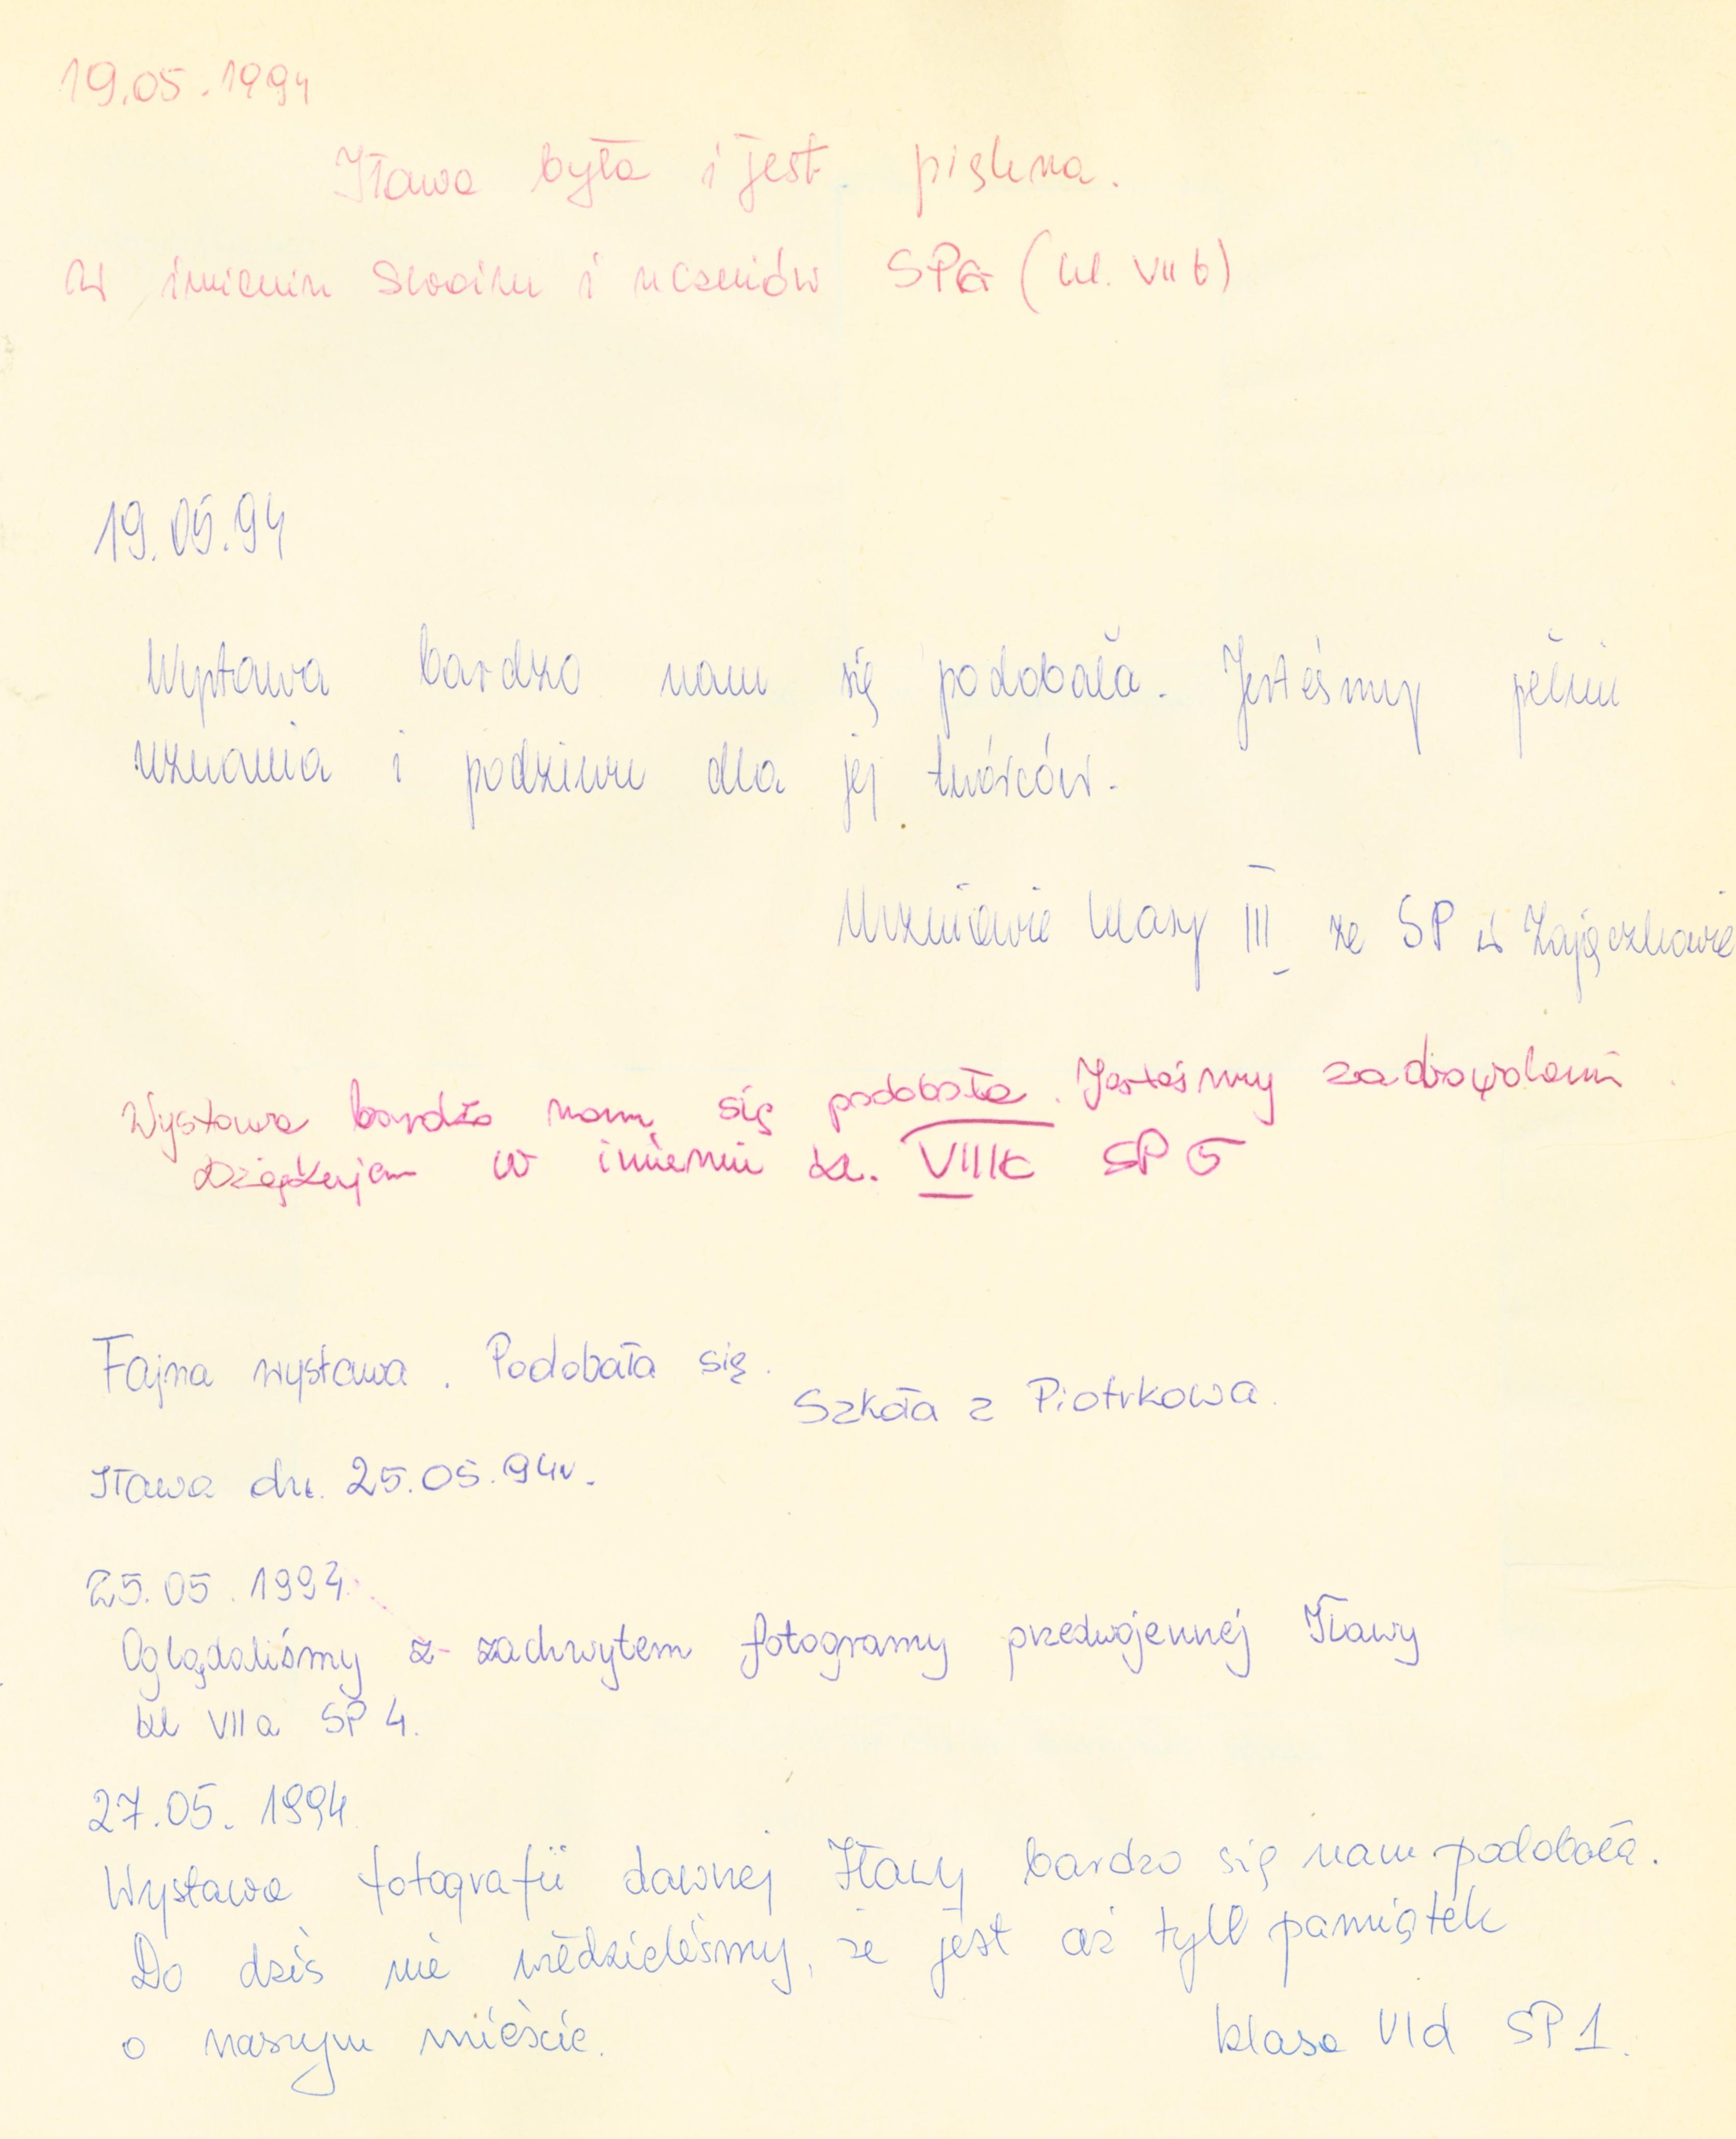 19.05.1994
Iława była i jest piękna.
W imieniu swoim i uczniów SP6 (kl. VII b)
19.05.94
Wystawa bardzo nam się podobała. Jesteśmy pełni
uznania i podziwu dla jej twórców.
Uczniowie klasy III ze SP w Zajączkowie
Wystawa bardzo nam się podobała. Jesteśmy zadowoleni.
Dziękujem w imieniu kl. VIIIc SP 5
Fajna wystawa. Podobała się.
Szkoła z Piotrkowa.
Iława dn. 25.05.94r.
25.05.1994.
Oglądaliśmy z zachwytem fotogramy przedwojennej Iławy
kl VII a SP 4.
27.05.1994
Wystawa fotografii dawnej Iławy bardzo się nam podobała.
Do dziś nie wiedzieliśmy, że jest aż tyle pamiątek
o naszym mieście. klasa VId SP 1.